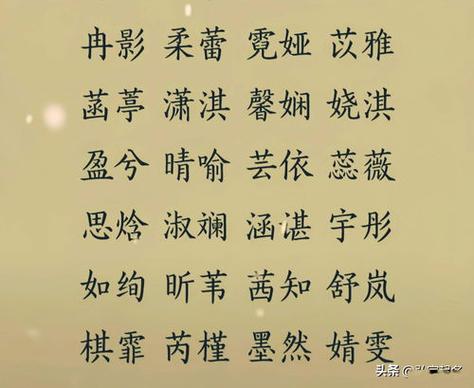 冉影 柔蕾 霓娅 苡雅
菡葶 潇淇 馨娴 娆淇
盈兮 晴喻 芸依 蕊薇
思焓 淑斓 涵谌 宇彤
如绚 昕苇 茜知 舒岚
棋霏 芮槿 墨然 婧雯
头条